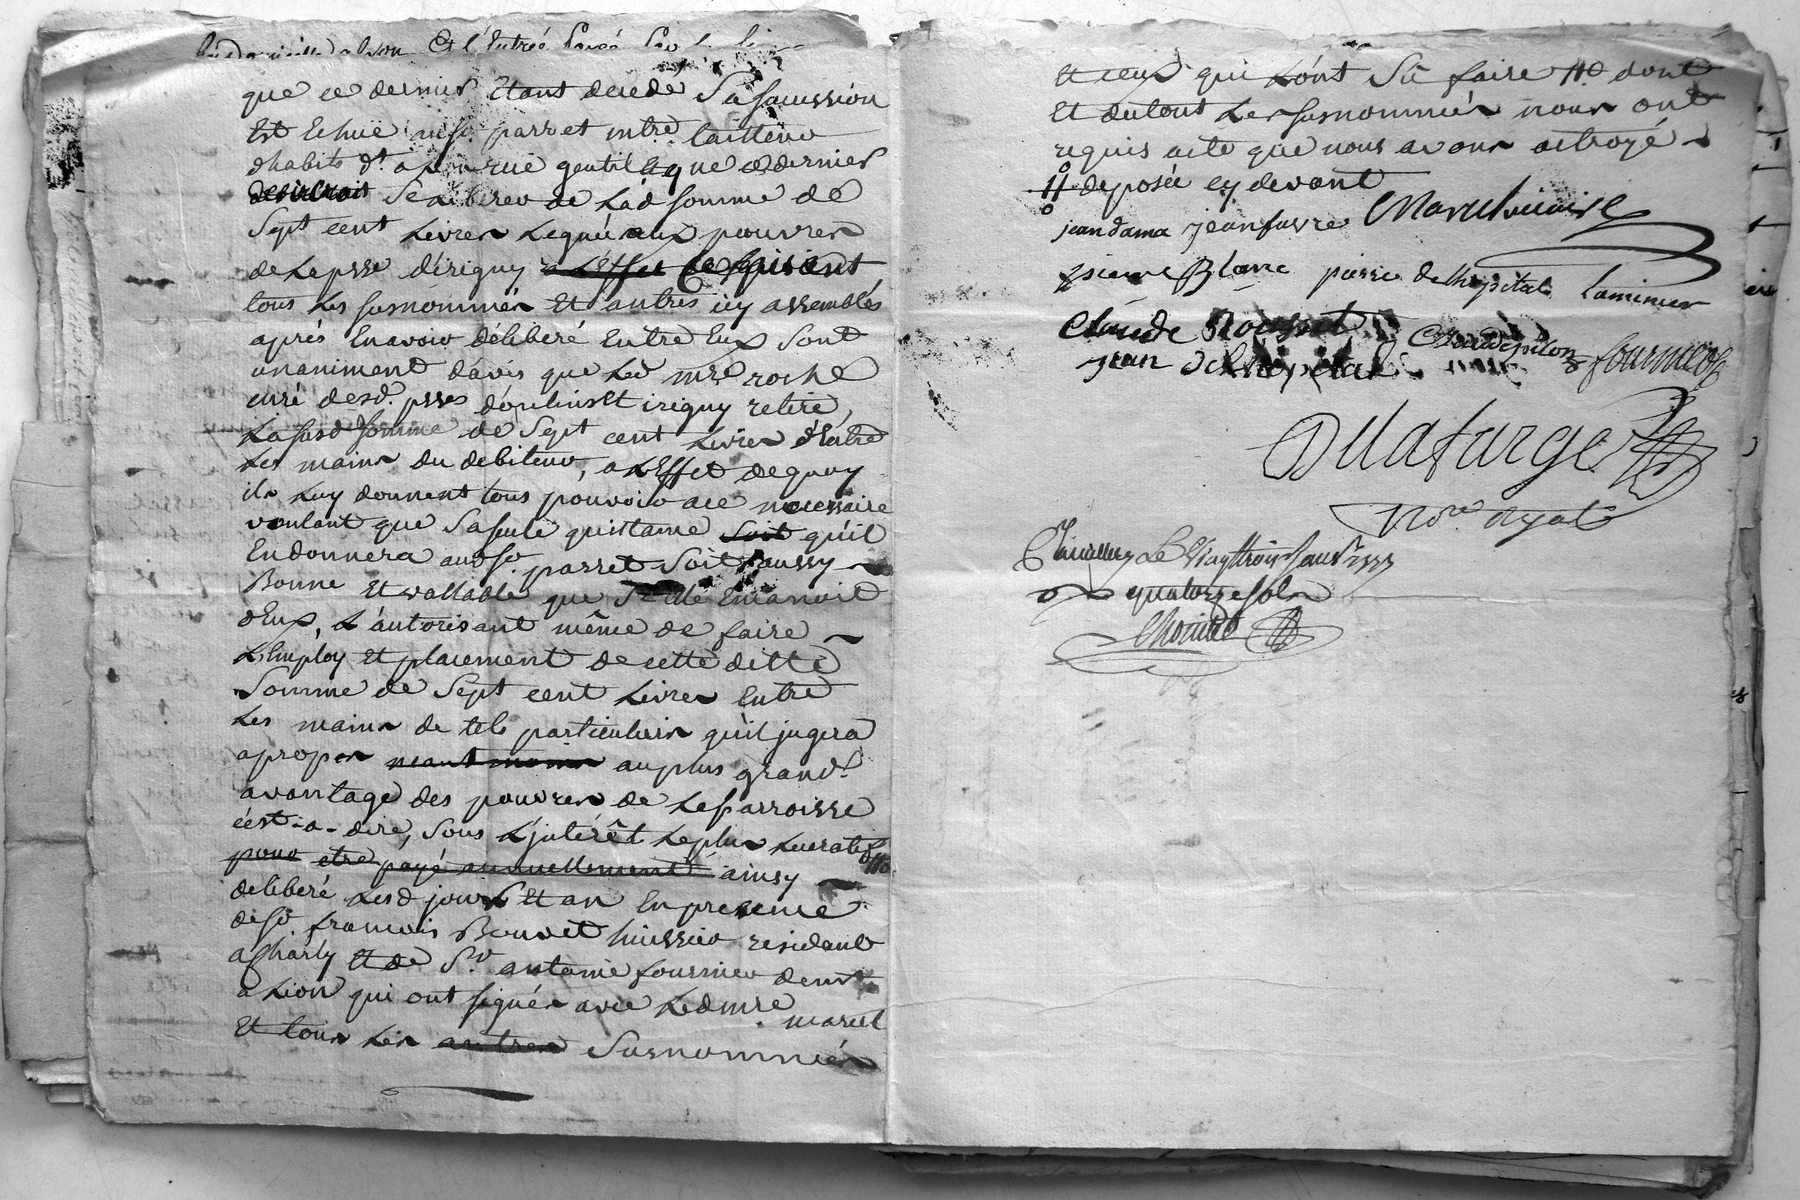 que ce dernier Etant decedé Sa sucussion
Est Echuë au sr. parret mtre. tailleur
dhabits dt. a rue gentil Et que ce dernier
desireroit Se liberer de Lad somme de
Sept cent Livres Leguée aux pouvres
de Lapsse d'érigny a L'effet Ce faisant
tous Les susnommés Et autres icy assemblés
aprés En avoir délibéré Entre Eux Sont
unaniment davis que Led mre roche
curé desd. psses d'oulins Et irigny retire
La susd somme de Sept cent Livres d'Entre
Les mains du debiteur, a L'Effet de quoy
ils Luy donnent tous pouvoir a ce necessaire
voulant que Sa seule quittance soit qu'il
En donnera aud sr. parret Soit aussy
Bonne Et vallable que Si Elle Emanoit
d'Eux, L'autorisant même de faire
L'Employ Et placement de cette ditte
Somme de Sept cent Livres Entre
Les mains de tels particuliers qu'il jugera
apropos neantmoins au plus grand
avantage des pouvres de Le parroisse
c'est-a-dire, Sous L'jnterêt Le plus Lucratif #
pour etre payé annuellement ainsy
deliberé Lesd jour Et an En presence
de sr. francois Bouvet huissier residant
a Charly Et de Sr. antoine fournier demt
a Lion qui ont signés avec Led mre
marcel
Et tous Les autres Susnommés
Et ceux qui L'ont Sû faire # dont
Et du tout Les susnommés nous ont
requis acte que nous avons octroyé
# deposée cy devant
jean dama jean favre
pierre Blanc pierre delhopital Laminer
Claude
jean delhopital fournier
Delafarge
Nore royal
Le vingt trois
quatorze sols